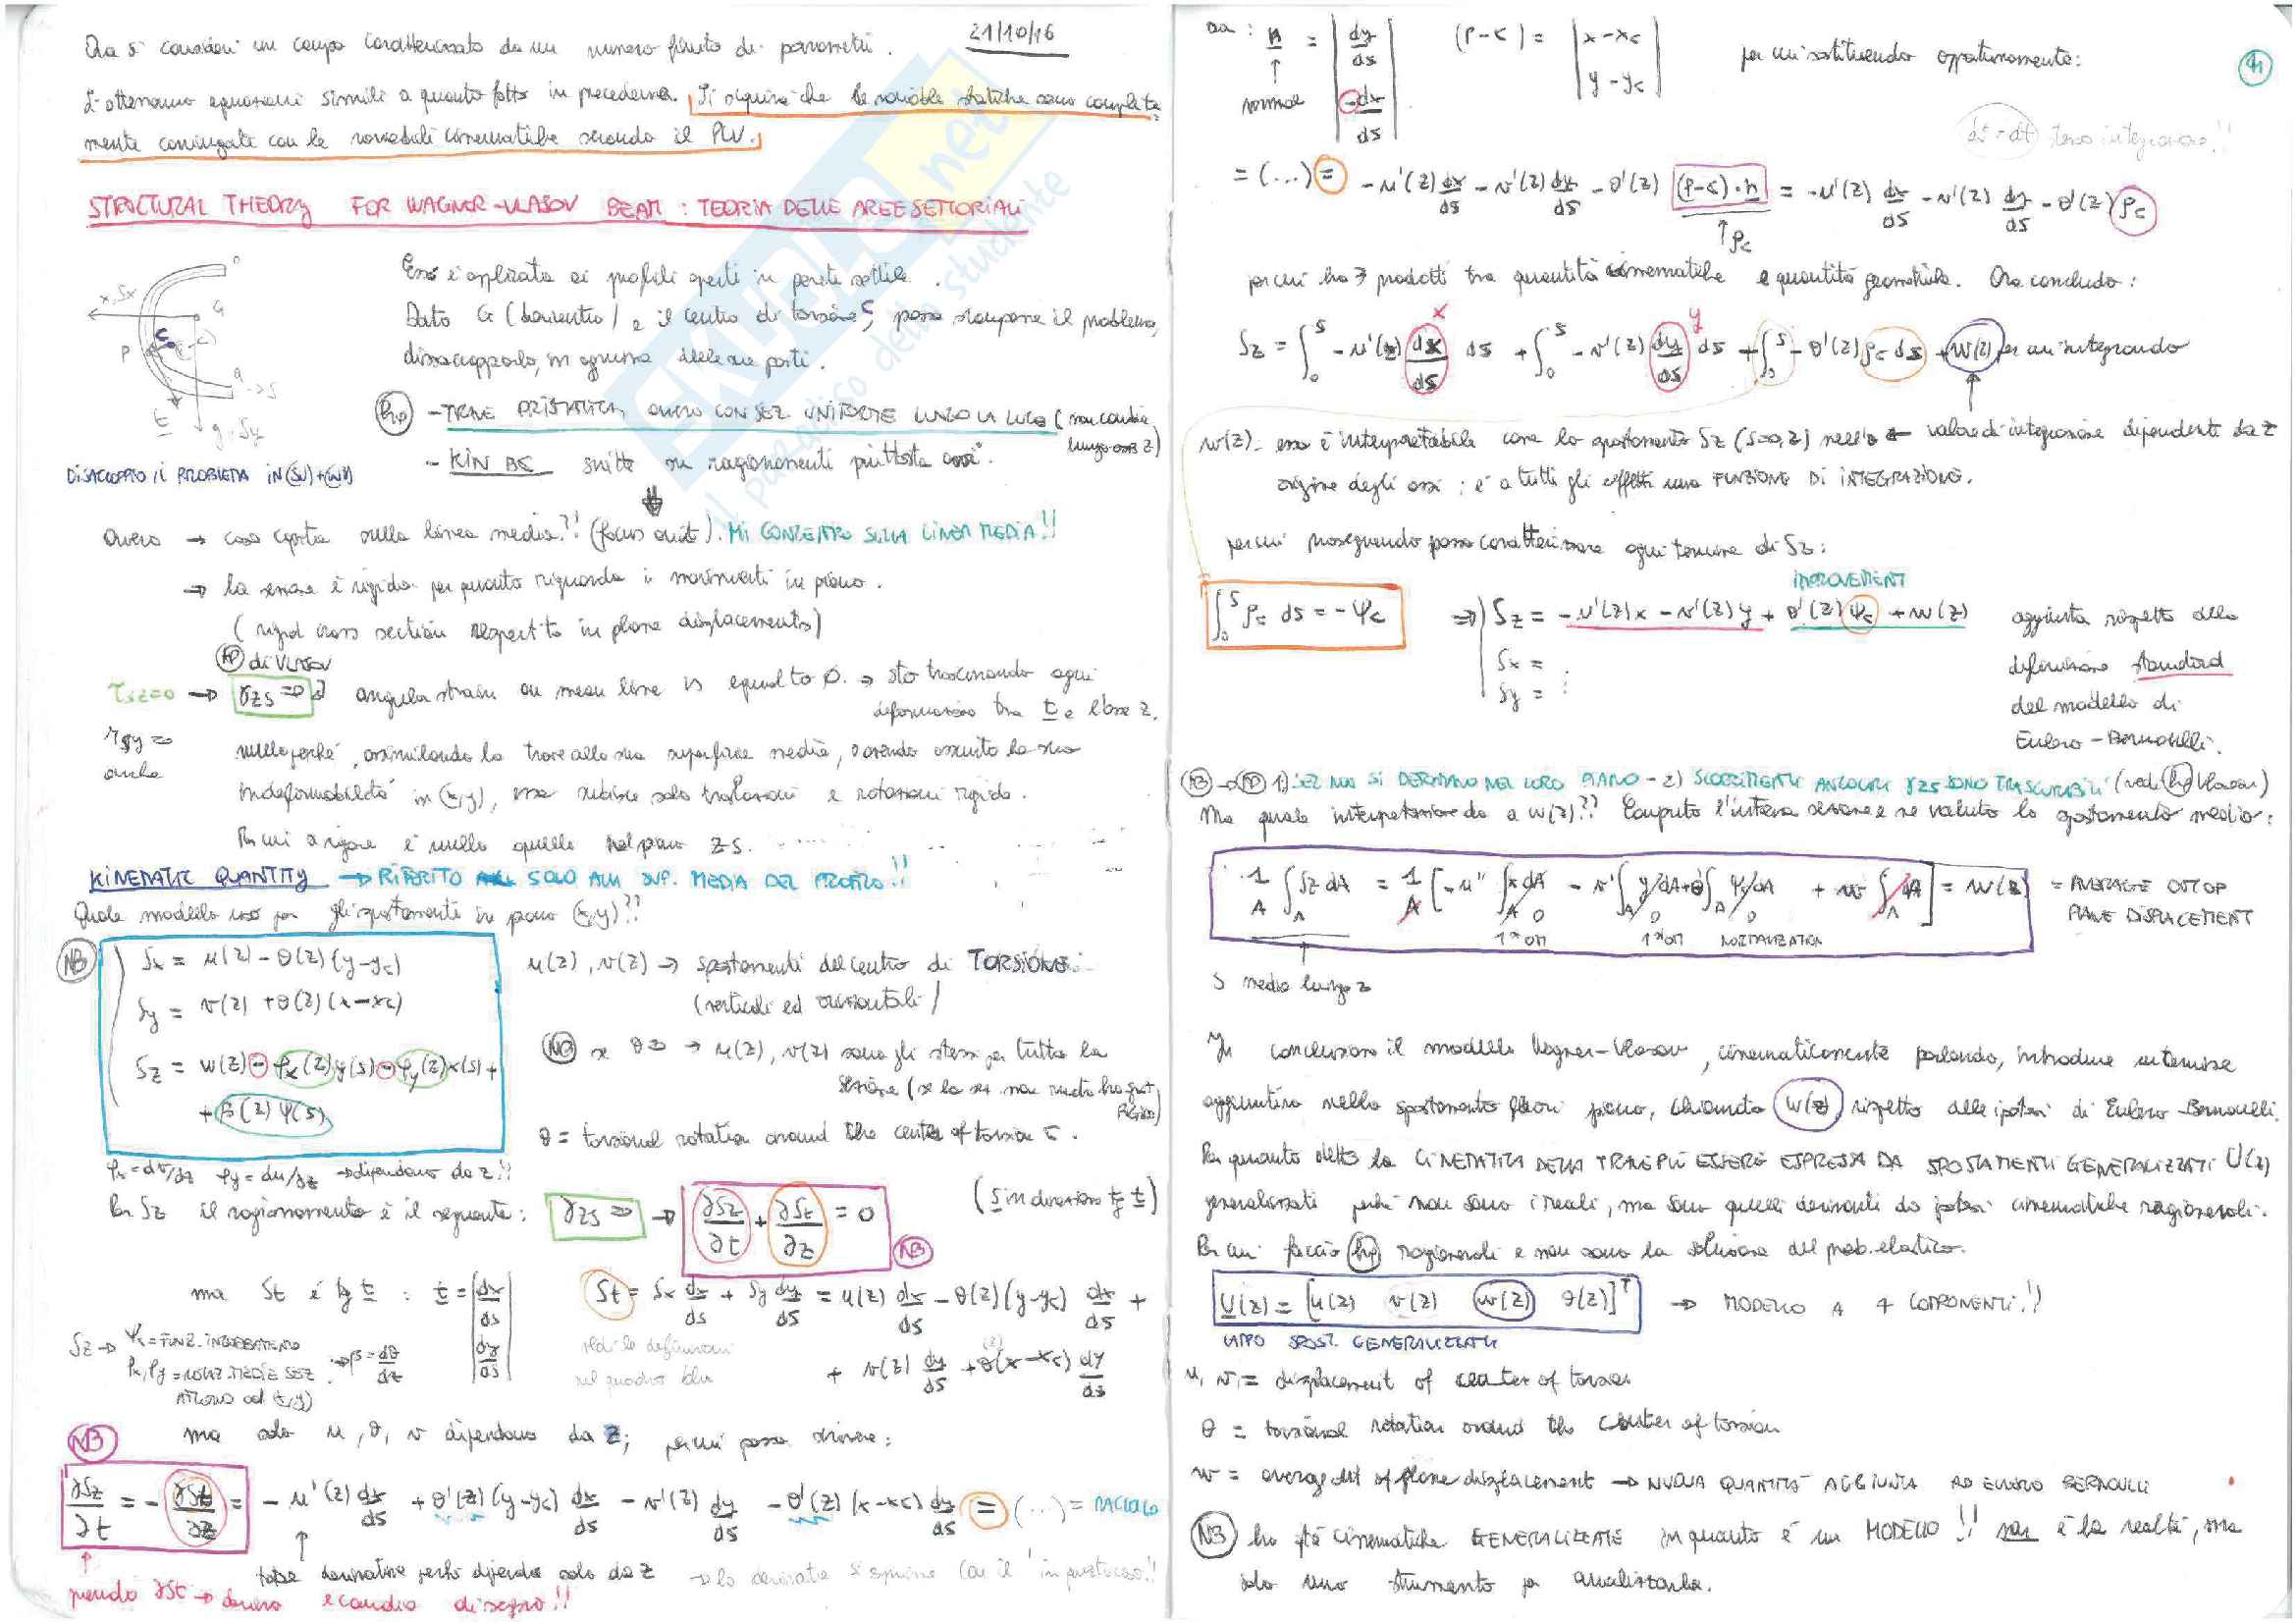 21/10/16
Ora si consideri un campo caratterizzato da un numero finito di parametri.
Si otterranno equazioni simili a quanto fatto in precedenza. Si richiede che le variabili statiche siano completa
mente coniugate con le variabili cinematiche secondo il PLV.
STRUCTURAL THEORY FOR WAGNER-VLASOV BEAM : TEORIA DELLE AREE SETTORIALI
Essa è applicata ai profili aperti in parete sottile.
Dato G (baricentro) e il centro di torsione C, posso scomporre il problema,
disaccoppiarlo, in ognuna delle sue parti.
(hp) - TRAVE PRISMATICA, OVVERO CON SEZ. UNIFORME LUNGO LA LUCE (non cambia lungo asse z)
- KIN BC scritte su ragionamenti piuttosto
DISACCOPPIO IL PROBLEMA IN (SV)+(WV)
Ovvero → cosa capita sulla linea media?! (focus on it). MI CONCENTRO SULLA LINEA MEDIA!!
→ la sezione è rigida per quanto riguarda i movimenti in piano.
(rigid cross section respect to in plane displacements)
(HP) di VLASOV
τsz=0 → γzs=0 angular strain on mean line is equal to 0. → sto trascurando ogni
deformazione tra t e l'asse z.
anche
nullo perché, assimilando la trave alla sua superficie media, e avendo assunto la sua
indeformabilità in (x,y), essa subisce solo traslazioni e rotazioni rigide.
Per cui a rigore è nullo quello nel piano zs.
KINEMATIC QUANTITY → RIFERITO SOLO ALLA SUP. MEDIA DEL PROFILO!!
Quale modello uso per gli spostamenti in piano (x,y)??
(NB) Sx = u(z) - θ(z)(y-yc)
Sy = v(z) + θ(z)(x-xc)
Sz = w(z) - φx(z)y(s) - φy(z)x(s) +
+ β(z)ψ(s)
u(z), v(z) → spostamenti del centro di TORSIONE
(verticali ed orizzontali)
(NB) se θ=0 → u(z), v(z) sono gli stessi per tutta la
sezione
θ = torsional rotation around the center of torsion C.
φx=dv/dz φy=du/dz → dipendono da z!!
Per Sz il ragionamento è il seguente: γzs=0 → ∂Sz/∂t + ∂St/∂z = 0 (NB) (S in direzione tg t)
ma St è tg t : t = |dx/ds dy/ds|
St = Sx dx/ds + Sy dy/ds = u(z) dx/ds - θ(z)(y-yc) dx/ds +
+ v(z) dy/ds + θ(z)(x-xc) dy/ds
vedi le definizioni
nel quadro blu
Sz → ψc = FUNZ. INGOBBAMENTO
φx, φy = ROTAZ. MEDIE SEZ. ATTORNO AD (x,y) β = dθ/dz
(NB) ma solo u, θ, v dipendono da z; per cui posso scrivere:
∂Sz/∂t = - ∂St/∂z = - u'(z) dx/ds + θ'(z)(y-yc) dx/ds - v'(z) dy/ds - θ'(z)(x-xc) dy/ds = (...) = RACCOLGO
totale derivative perché dipende solo da z → la derivata si esprime con il '
prendo ∂St → derivo e cambio di segno!!
41
da : n = |dy/ds -dx/ds| (P-C) = |x-xc y-yc| per cui sostituendo opportunamente:
normal
ds = dt senso integrazione!!
= (...) = - u'(z) dx/ds - v'(z) dy/ds - θ'(z) (P-C)·n = - u'(z) dx/ds - v'(z) dy/ds - θ'(z) ρc
↑ ρc
per cui ho 3 prodotti tra quantità cinematiche e quantità geometriche. Ora concludo:
x y
Sz = ∫₀ˢ - u'(z) dx/ds ds + ∫₀ˢ - v'(z) dy/ds ds + ∫₀ˢ - θ'(z) ρc ds + w(z) per cui integrando
w(z) = essa è interpretabile come lo spostamento Sz (s=0, z) nell'
valore di integrazione dipendente da z
origine degli assi; è a tutti gli effetti una FUNZIONE DI INTEGRAZIONE.
per cui proseguendo posso caratterizzare ogni termine di Sz:
∫₀ˢ ρc ds = - ψc ⇒ Sz = - u'(z)x - v'(z)y + θ'(z) ψc + w(z)
IMPROVEMENT
Sx = ...
Sy = ...
aggiunta rispetto alla
definizione standard
del modello di
Eulero-Bernoulli.
(NB) → (HP) 1) SEZ NON SI DEFORMANO NEL LORO PIANO - 2) SCORRIMENTI ANGOLARI γzs SONO TRASCURABILI (vedi (hp) Vlasov)
Ma quale interpretazione do a w(z)?? Computo l'intera sezione e ne valuto lo spostamento medio:
1/A ∫A Sz dA = 1/A [- u' ∫A x dA - v' ∫A y dA + θ' ∫A ψc dA + w ∫A dA] = w(z) = AVERAGE OUT OF
PLANE DISPLACEMENT
0 0 0
NORMALIZATION
S medio lungo z
In conclusione il modello Wagner-Vlasov, cinematicamente parlando, introduce un termine
aggiuntivo nello spostamento fuori piano, chiamato w(z), rispetto alle ipotesi di Eulero-Bernoulli.
Per quanto detto la CINEMATICA DELLA TRAVE PUÒ ESSERE ESPRESSA DA SPOSTAMENTI GENERALIZZATI U(z)
generalizzati perché non sono i reali, ma sono quelli derivanti da ipotesi cinematiche ragionevoli.
Per cui faccio (hp) ragionevoli e non sono la soluzione del prob. elastico.
U(z) = [u(z) v(z) w(z) θ(z)]ᵀ → MODELLO A 4 COMPONENTI!!
CAMPO SPOST. GENERALIZZATI
u, v = displacement of center of torsion
θ = torsional rotation around the center of torsion
w = average out of plane displacement → NUOVA QUANTITÀ AGGIUNTA AD EULERO BERNOULLI
(NB) ho qtà cinematiche GENERALIZZATE in quanto è un MODELLO!! non è la realtà, ma
solo uno strumento per analizzarla.